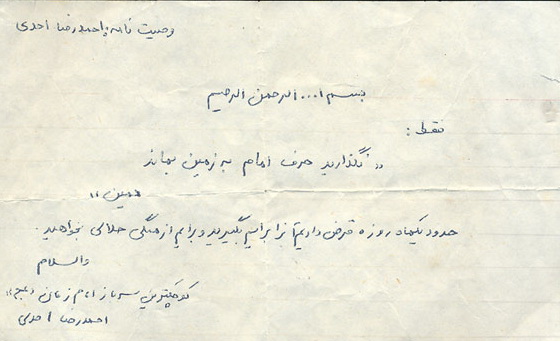 وصیت نامه احمدرضا احدی
بسم ا... الرحمن الرحیم
فقط:
«نگذارید حرف امام به زمین بماند
همین»
حدود یکماه روزه قرض دارم آنرا برایم بگیرید و برایم از همگی حلالی بخواهید.
والسلام
کوچکترین سرباز امام زمان «عج»
احمدرضا احدی